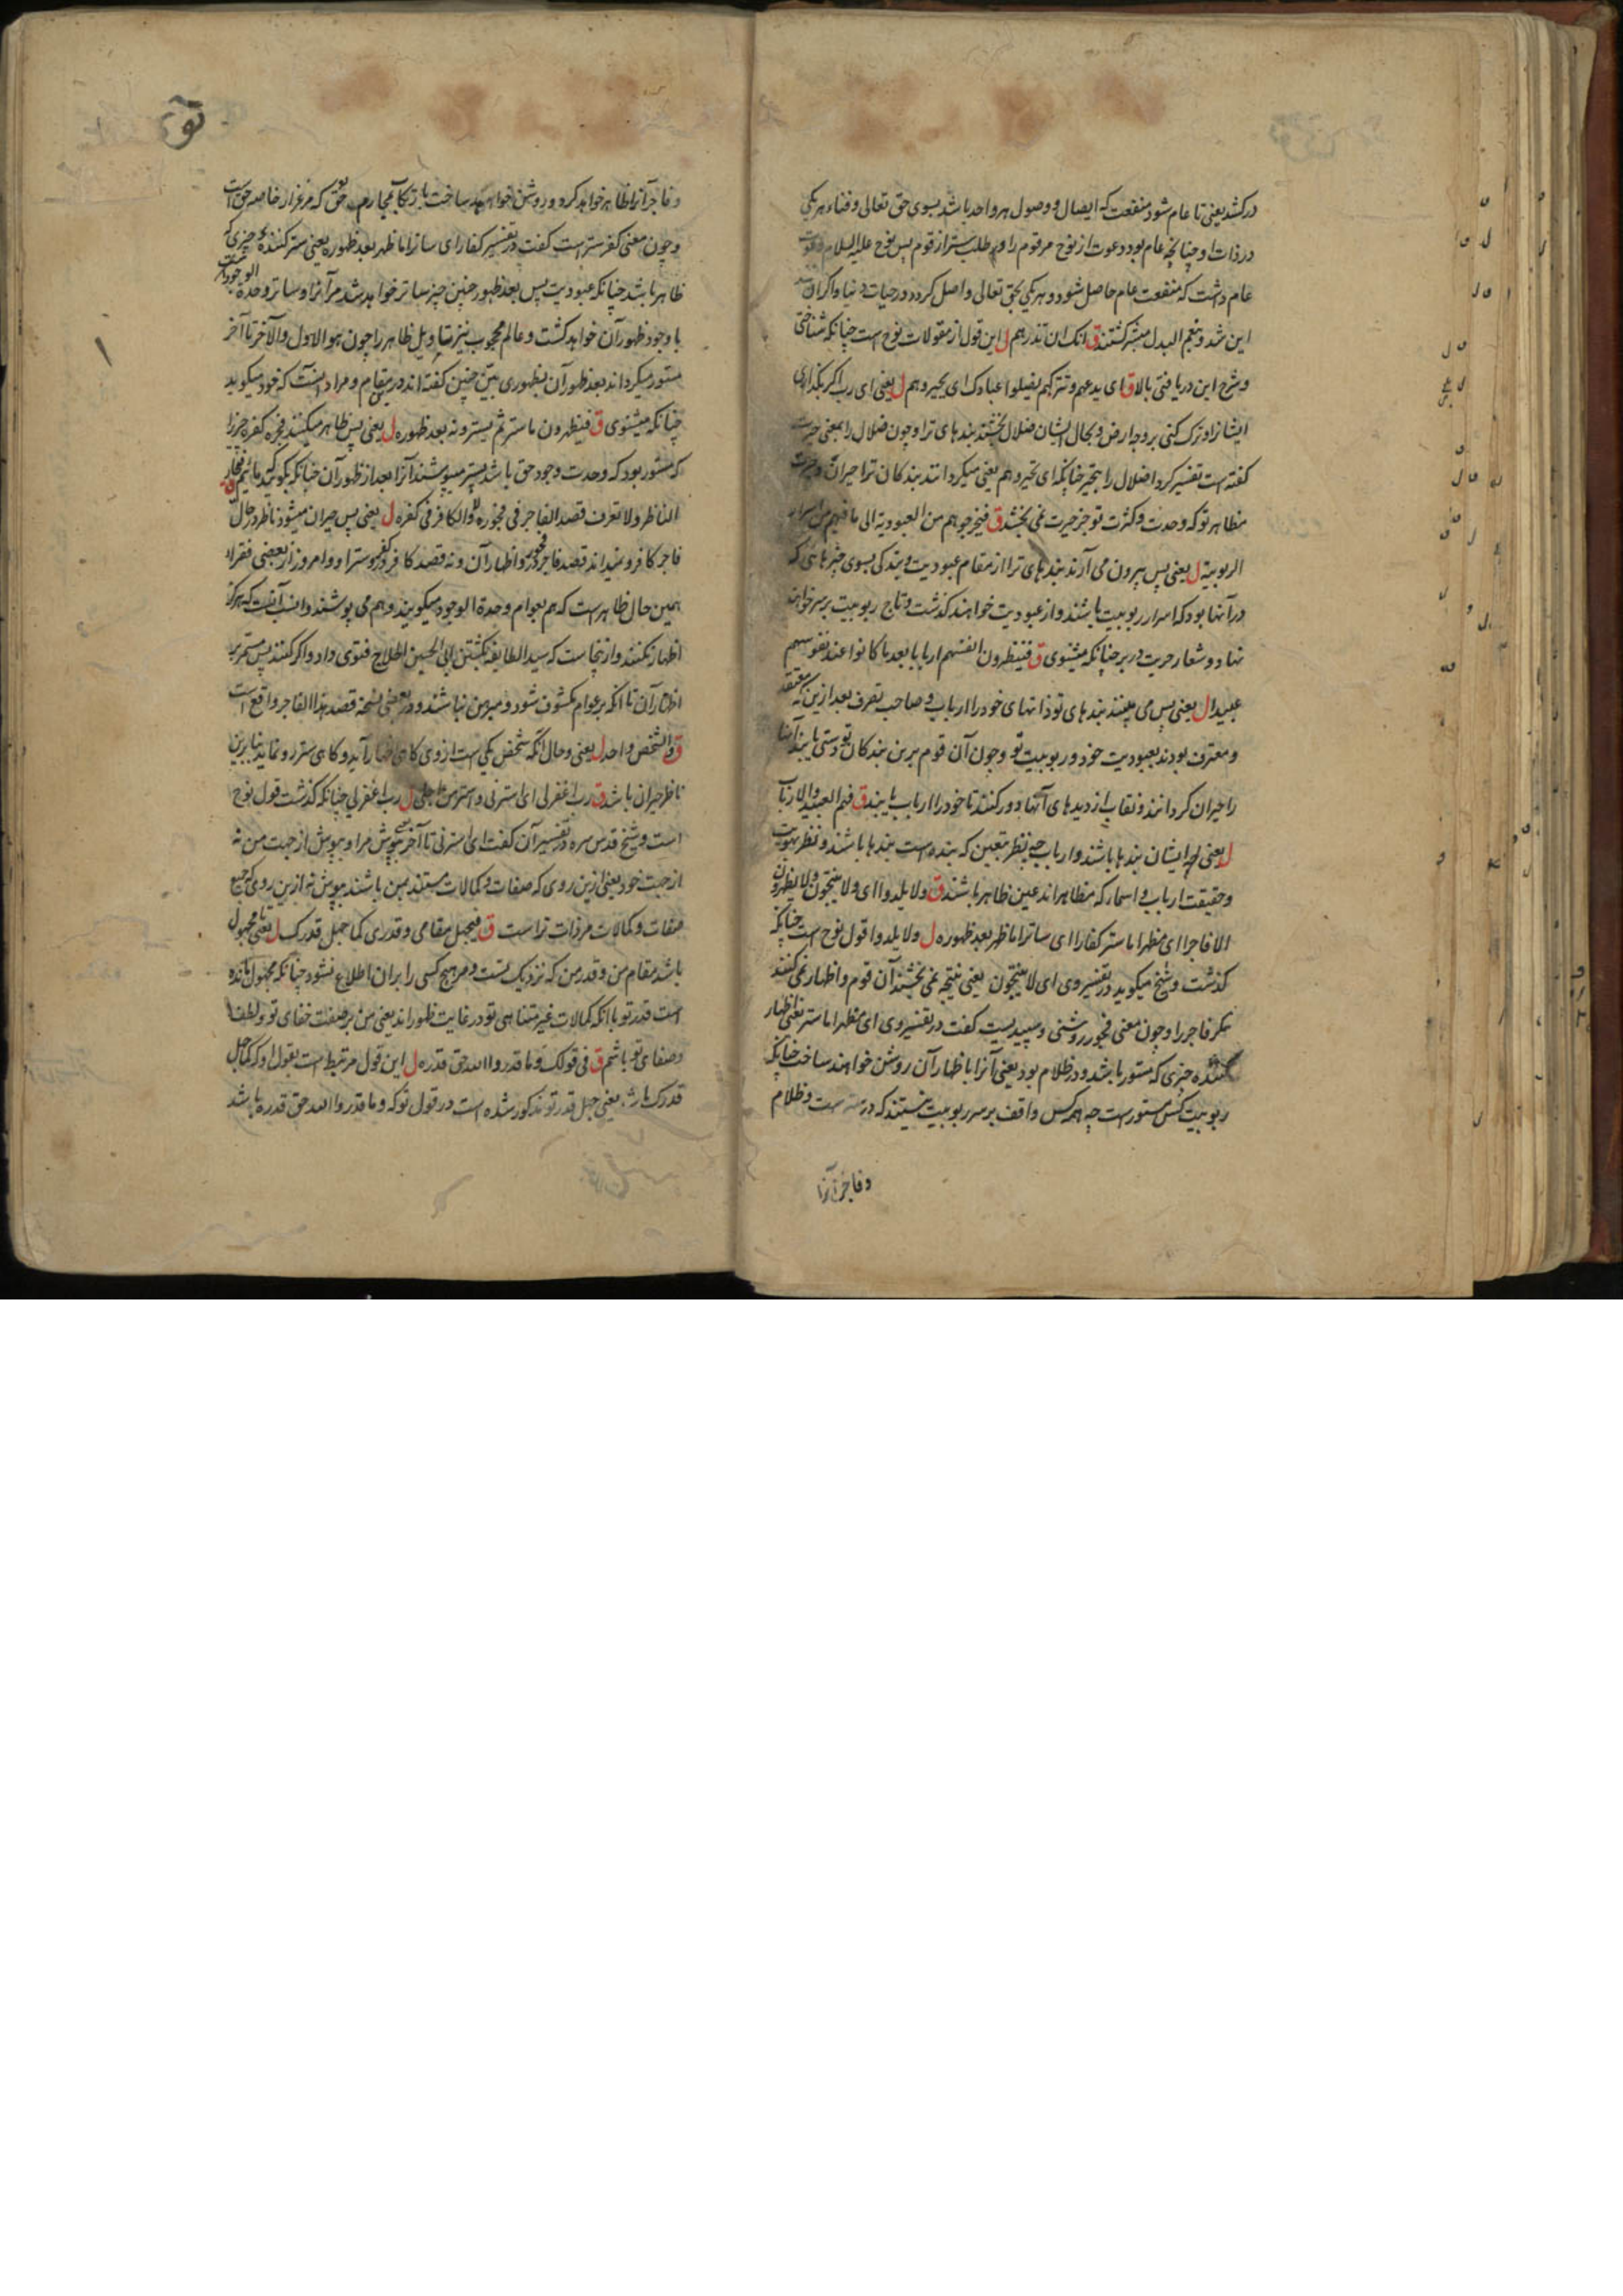 در کشد یعنی تا عام شود منفعت که ایصال و وصول هر واحد باشد بسوی حق تعالی و فناء هر یکی
در ذات او چنانچه عام بود دعوت از نوح مر قوم را و طلب ستر از قوم پس نوح علیه السلام دعوت
عام داشت که منفعت عام حاصل شود و هر یکی بحق تعالی واصل کردد در حیات دنیا و اکر آن
این شد و نعم البدل مبشر کشتند ق انک ان تذرهم ل این قول از مقولات نوح است چنانکه شناختی
و شرح این دریافتی بالا ق ای یدعهم و تترکهم یضلوا عبادک ای یحیروهم ل یعنی ای رب اکر بکذاری
ایشانرا و ترک کنی بر وجه ارض و بحال ایشان ضلال بخشند بندهای ترا و چون ضلال را بمعنی حیرت
کفته است تفسیر کرد اضلال را بتحیر چنانکه ای یحیروهم یعنی میکردانند بندکان ترا حیران و حیرت
مظاهر تو که وحدت و کثرت تو جز حیرت نمی بخشد ق فیخرجوهم من العبودیة الی ما فیهم من اسرار
الربوبیة ل یعنی پس بیرون می آرند بندهای ترا از مقام عبودیت و بندکی بسوی چیزهائی که
در آنها بود که اسرار ربوبیت باشند و از عبودیت خواهند کذشت و تاج ربوبیت بر سر خواهند
نهاد و شعار حریت در بر چنانکه میشنوی ق فینظرون انفسهم اربابا بعد ما کانوا عند نفوسهم
عبیدا ل یعنی پس می بینند بندهای تو ذاتهای خود را ارباب و صاحب تصرف بعد ازین که معتقد
و معترف بودند بعبودیت خود و ربوبیت تو و چون آن قوم برین بندکان تو دستی یابند آنها
را حیران کردانند و نقاب از دیدهای آنها دور کنند تا خود را ارباب یابند ق فهم العبید و الارباب
ل یعنی ایشان بندها باشند و ارباب چه بنظر تعین که بنده است بندها باشند و نظر بهویت
و حقیقت ارباب و اسما که مظاهراند عین ظاهر باشند ق و لا یلدوا ای و لا ینتجون و لا یظهرون
الا فاجرا ای مظهرا ما ستر کفارا ای ساترا ما ظهر بعد ظهوره ل و لا یلدوا قول نوح است چنانکه
کذشت و شیخ میکوید در تفسیر وی ای لا ینتجون یعنی نتیجه نمی بخشند آن قوم و اظهار نمی کنند
مکر فاجر را و چون معنی فجور روشنی و سپیدیست کفت در تفسیر وی ای مظهرا ما ستر یعنی اظهار
کننده چیزی که مستور باشد و در ظلام بود یعنی آنرا باظهار آن روشن خواهند ساخت چنانکه
ربوبیت کس مستور است چه همه کس واقف بر سر ربوبیت نیستند که در ستر است و ظلام
و فاجر آنرا
و فاجر آنرا ظاهر خواهد کرد و روشن خواهد ساخت بارتکاب محارم حق که مرغزار خاصه حق است
و چون معنی کفر ستر است کفت در تفسیر کفارا ای ساترا ما ظهر بعد ظهوره یعنی ستر کننده چیزی که
ظاهر باشد چنانکه عبودیت پس بعد ظهور چنین چیز ساتر خواهد شد مر آنرا و ساتر وحدة الوجود است
با وجود ظهور آن خواهد کشت و عالم محجوب نیز بتاویل ظاهر را چون هو الاول و الآخر تا آخر
مستور میکرداند بعد ظهور آن بظهوری بین چنین کفته اند در مقام و مراد اینست که خود میکوید
چنانکه میشنوی ق فیظهرون ما ستر ثم یسترونه بعد ظهوره ل یعنی پس ظاهر میکنند فجره کفره چیز را
که مستور بود که وحدت وجود حق باشد پستر میپوشند آنرا بعد از ظهور آن چنانکه بکویند مائیم فجار ق فیحار
الناظر و لا یعرف قصد الفاجر فی فجوره و لا الکافر فی کفره ل یعنی پس حیران میشود ناظر در حال
فاجر کافر و نمیداند قصد فاجر در فجور و اظهار آن و نه قصد کافر در کفر و ستر او و امروز از بعضی فقرا
همین حال ظاهر است که هم بعوام وحدة الوجود میکویند و هم می پوشند و انسب آنست که هرکز
اظهار نکنند و ازینجاست که سید الطایفه بکشتن ابی الحسین الحلاج فتوی داد و اکر کنند پس مستمر بر
اظهار آن تا آنکه بر عوام مکشوف شود و مبرهن نباشند و در بعضی نسخه قصد هذا الفاجر واقع است
ق و الشخص واحد ل یعنی و حال آنکه شخص یکی است از وی کاهی اظهار آید و کاهی ستر رو نماید بنابرین
ناظر حیران باشد ق رب اغفر لی ای استرنی و استر من اجلی ل رب اغفر لی چنانکه کذشت قول نوح
است و شیخ قدس سره در تفسیر آن کفت ای استرنی تا آخر یعنی بپوش مرا و بپوش از جهت من نه
از جهت خود یعنی ازین روی که صفات و کمالات مستند بمن باشند بپوش نه ازین روی که جمیع
صفات و کمالات مر ذات تراست ق فیجهل مقامی و قدری کما جهل قدرک ل یعنی تا مجهول
باشد مقام من و قدر من که نزدیک تست و مر هیچ کسی را بر آن اطلاع نشود چنانکه مجهول مانده
است قدر تو با آنکه کمالات غیر متناهی تو در غایت ظهوراند یعنی من بر صفت خفای تو و لطف
و صفای تو باشم ق فی قولک و ما قدروا الله حق قدره ل این قول مرتبط است بقول او که کما جهل
قدرک باشد یعنی جهل قدر تو مذکور شده است در قول تو که و ما قدروا الله حق قدره باشد